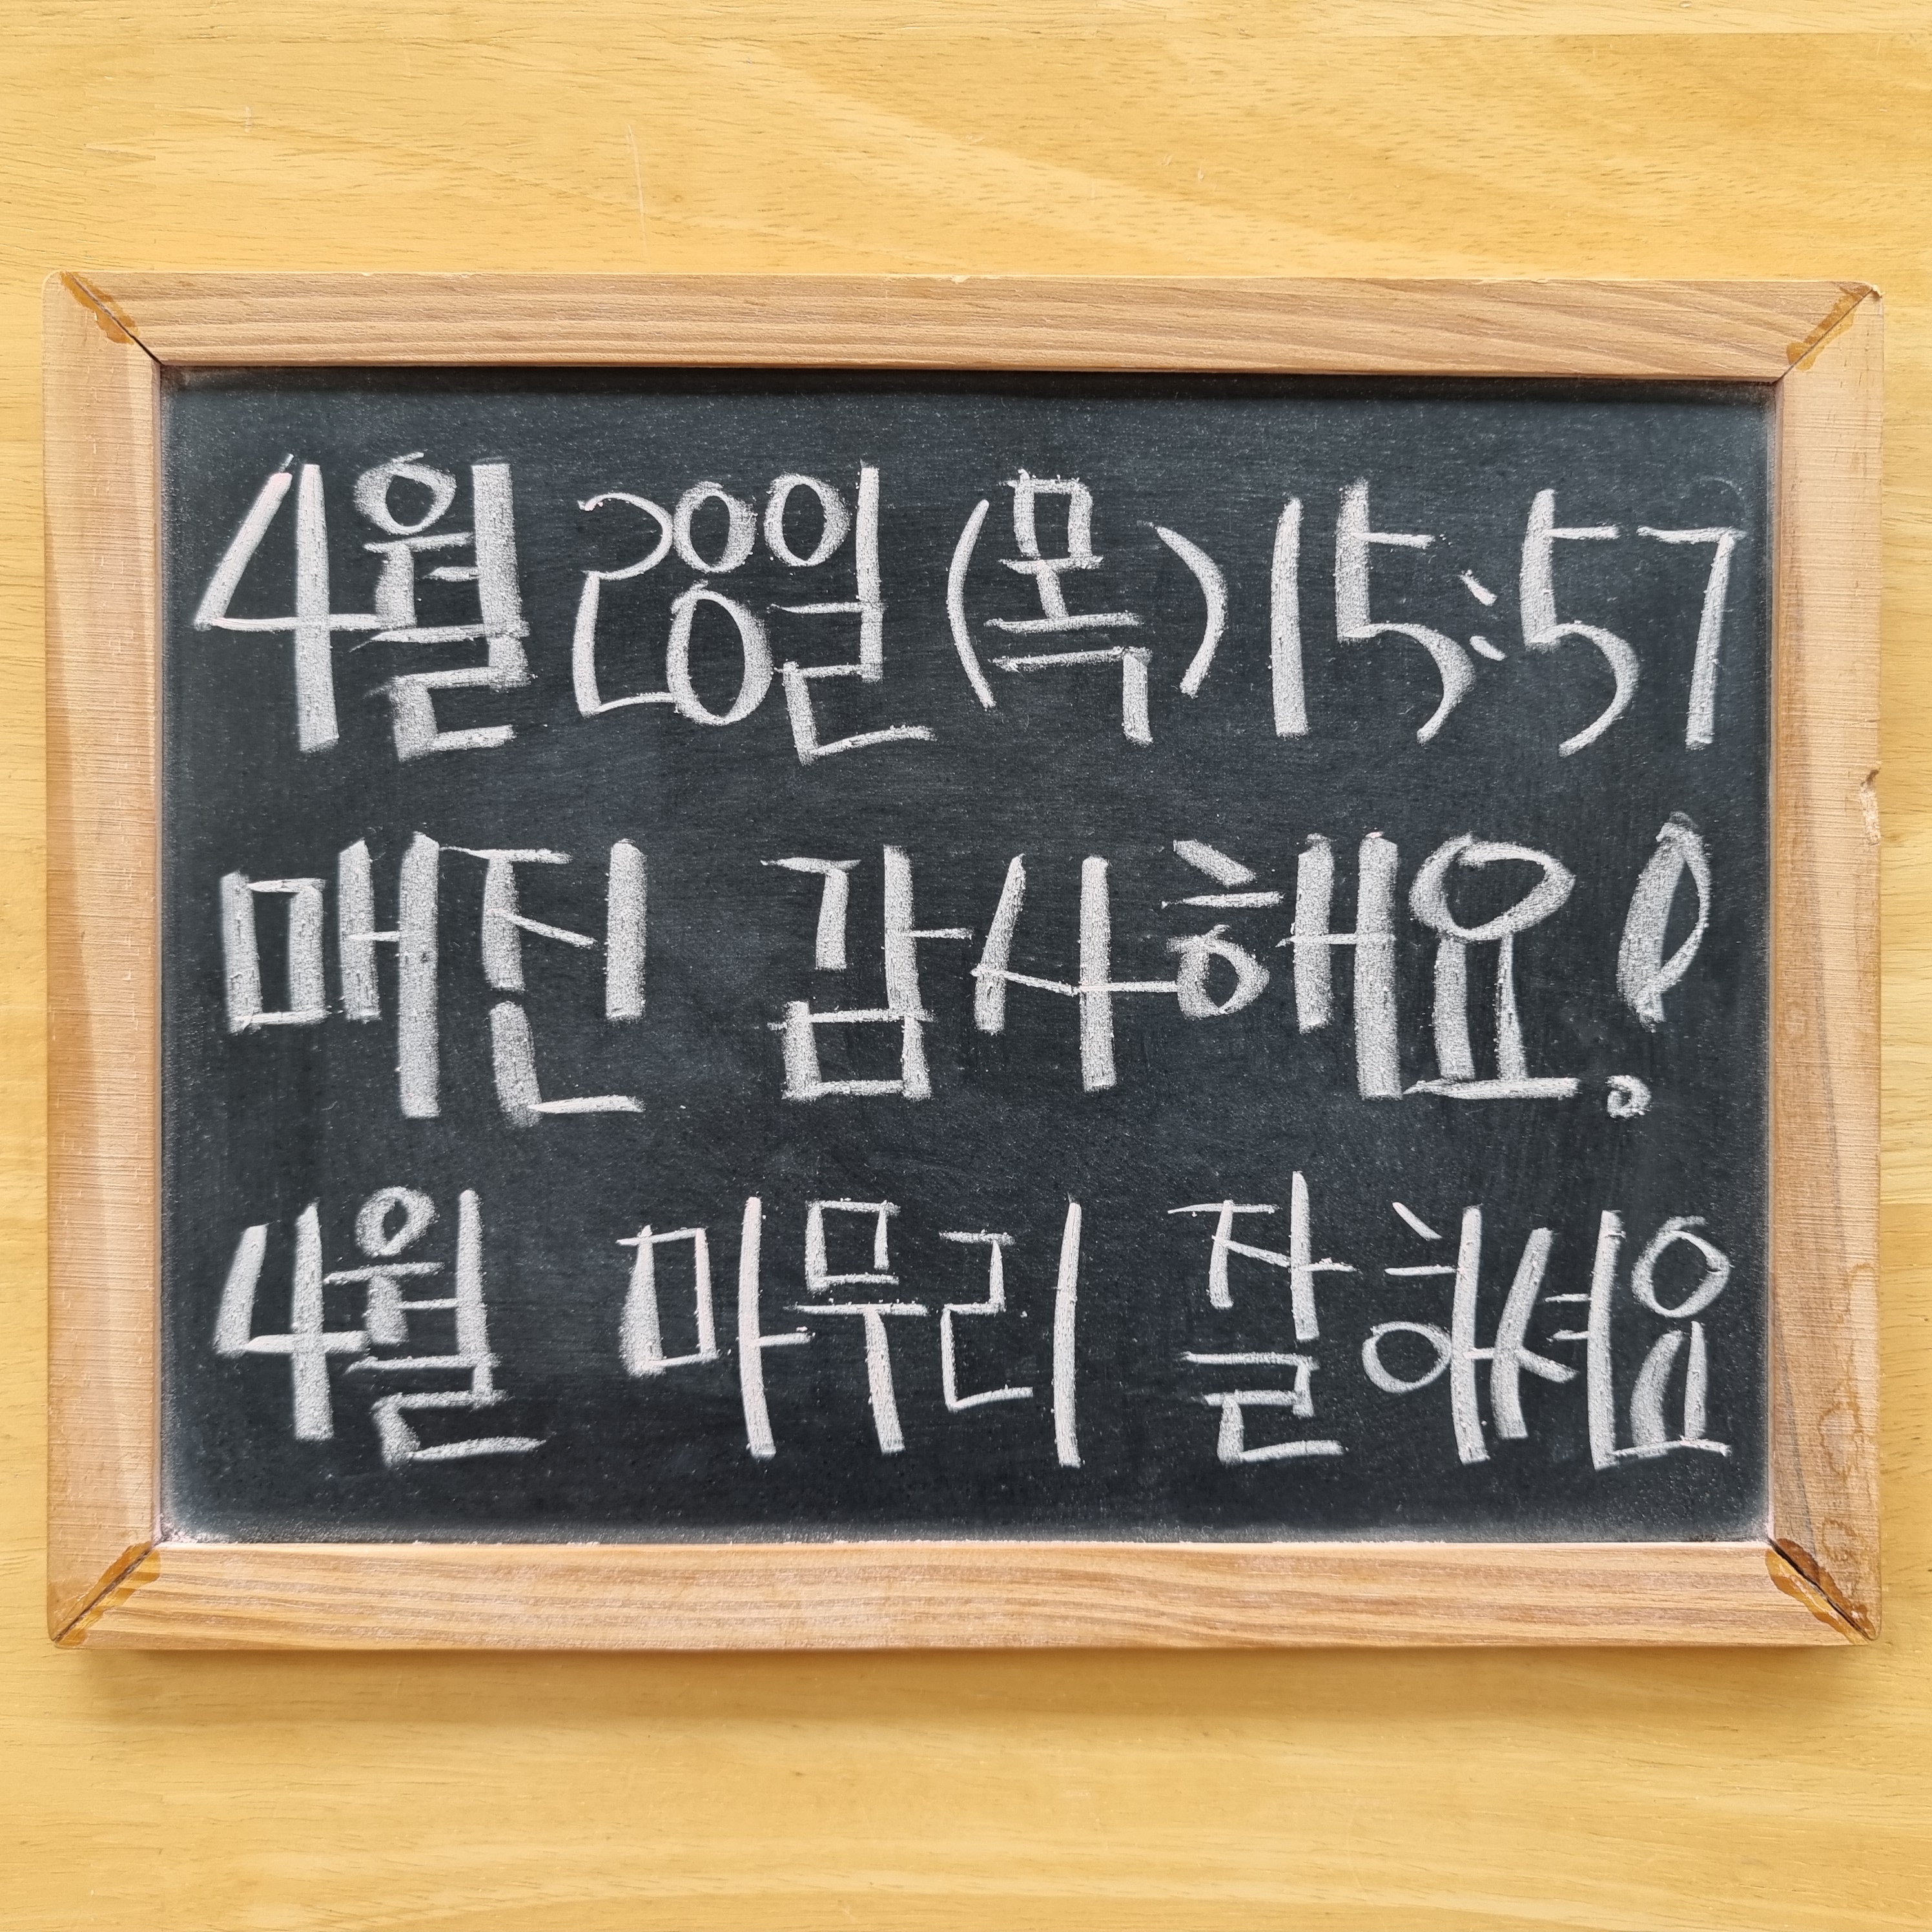 4월 28일 (목) 15:57
매진 감사해요!
4월 마무리 잘하셔요